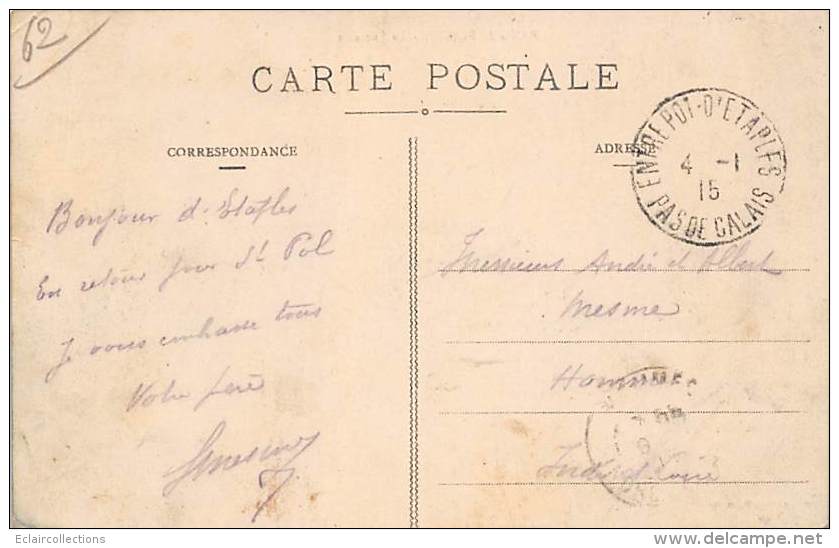 62
CARTE POSTALE
CORRESPONDANCE
ADRESSE
ENTREPOT-D'ETAPLES
4 -1
15
PAS DE CALAIS
Bonjour d'Etaples
En retour pour St Pol
Je vous embrasse tous
Votre père
Messieurs André et Albert
Mesme
Hommes
Indre et Loire
Eclaircollections
www.delcampe.net